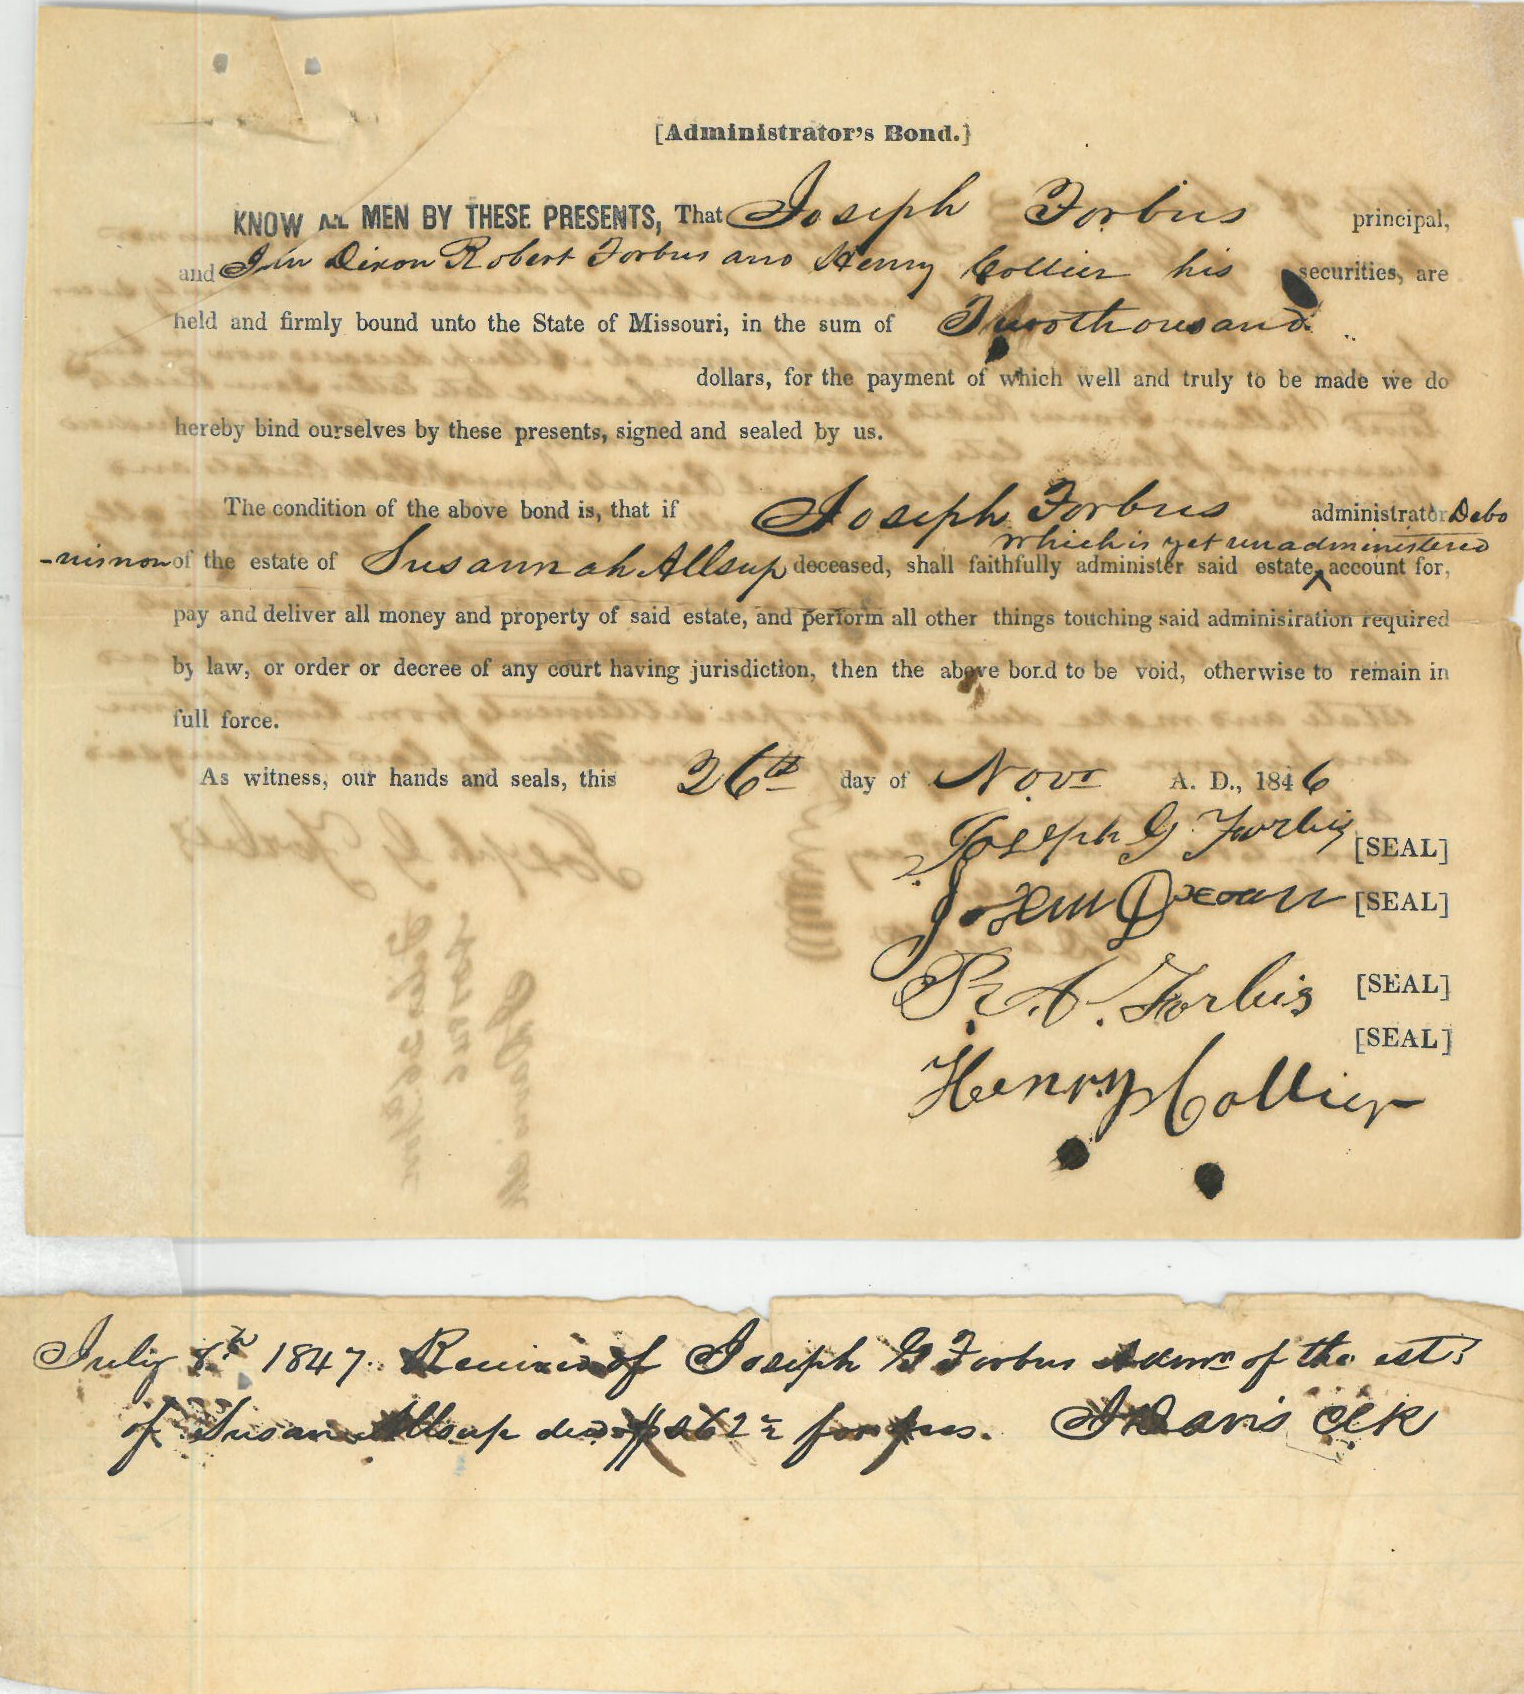 [Administrator's Bond.]
KNOW ALL MEN BY THESE PRESENTS, That Joseph Forbus principal,
and Jno Dixon Robert Forbus and Henry Collier his securities, are
held and firmly bound unto the State of Missouri, in the sum of Two thousand
dollars, for the payment of which well and truly to be made we do
hereby bind ourselves by these presents, signed and sealed by us.
The condition of the above bond is, that if Joseph Forbus administrator Debo
which is yet unadministered
-nisnon of the estate of Susannah Allsup deceased, shall faithfully administer said estate, ^ account for,
pay and deliver all money and property of said estate, and perform all other things touching said adminisiration required
by law, or order or decree of any court having jurisdiction, then the above bond to be void, otherwise to remain in
full force.
As witness, our hands and seals, this 26th day of Novr A. D., 1846
Joseph G Forbis [SEAL]
John Dixon [SEAL]
R. A. Forbis [SEAL]
[SEAL]
Henry Collier
July 8th 1847. Received of Joseph G Forbus Admr of the est
of Susan Allsup decd $ for fees. J Davis Clk